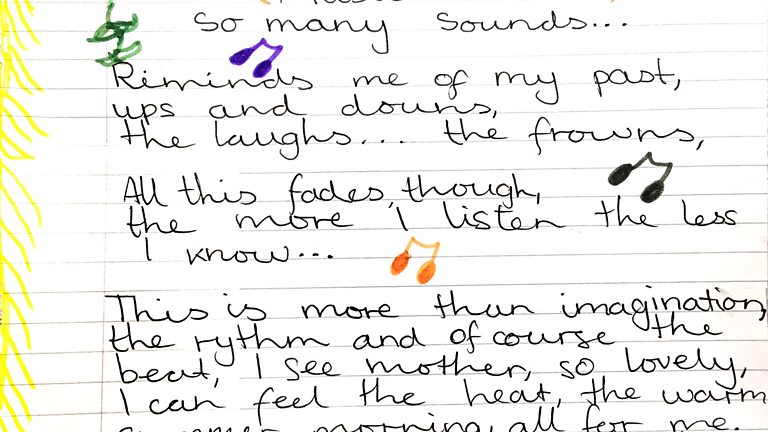 so many sounds...
Reminds me of my past,
ups and downs,
the laughs... the frowns,
All this fades, though,
the more I listen the less
I know...
This is more than imagination,
the rythm and of course the
beat, I see mother, so lovely,
I can feel the heat, the warm
summer morning, all for me.